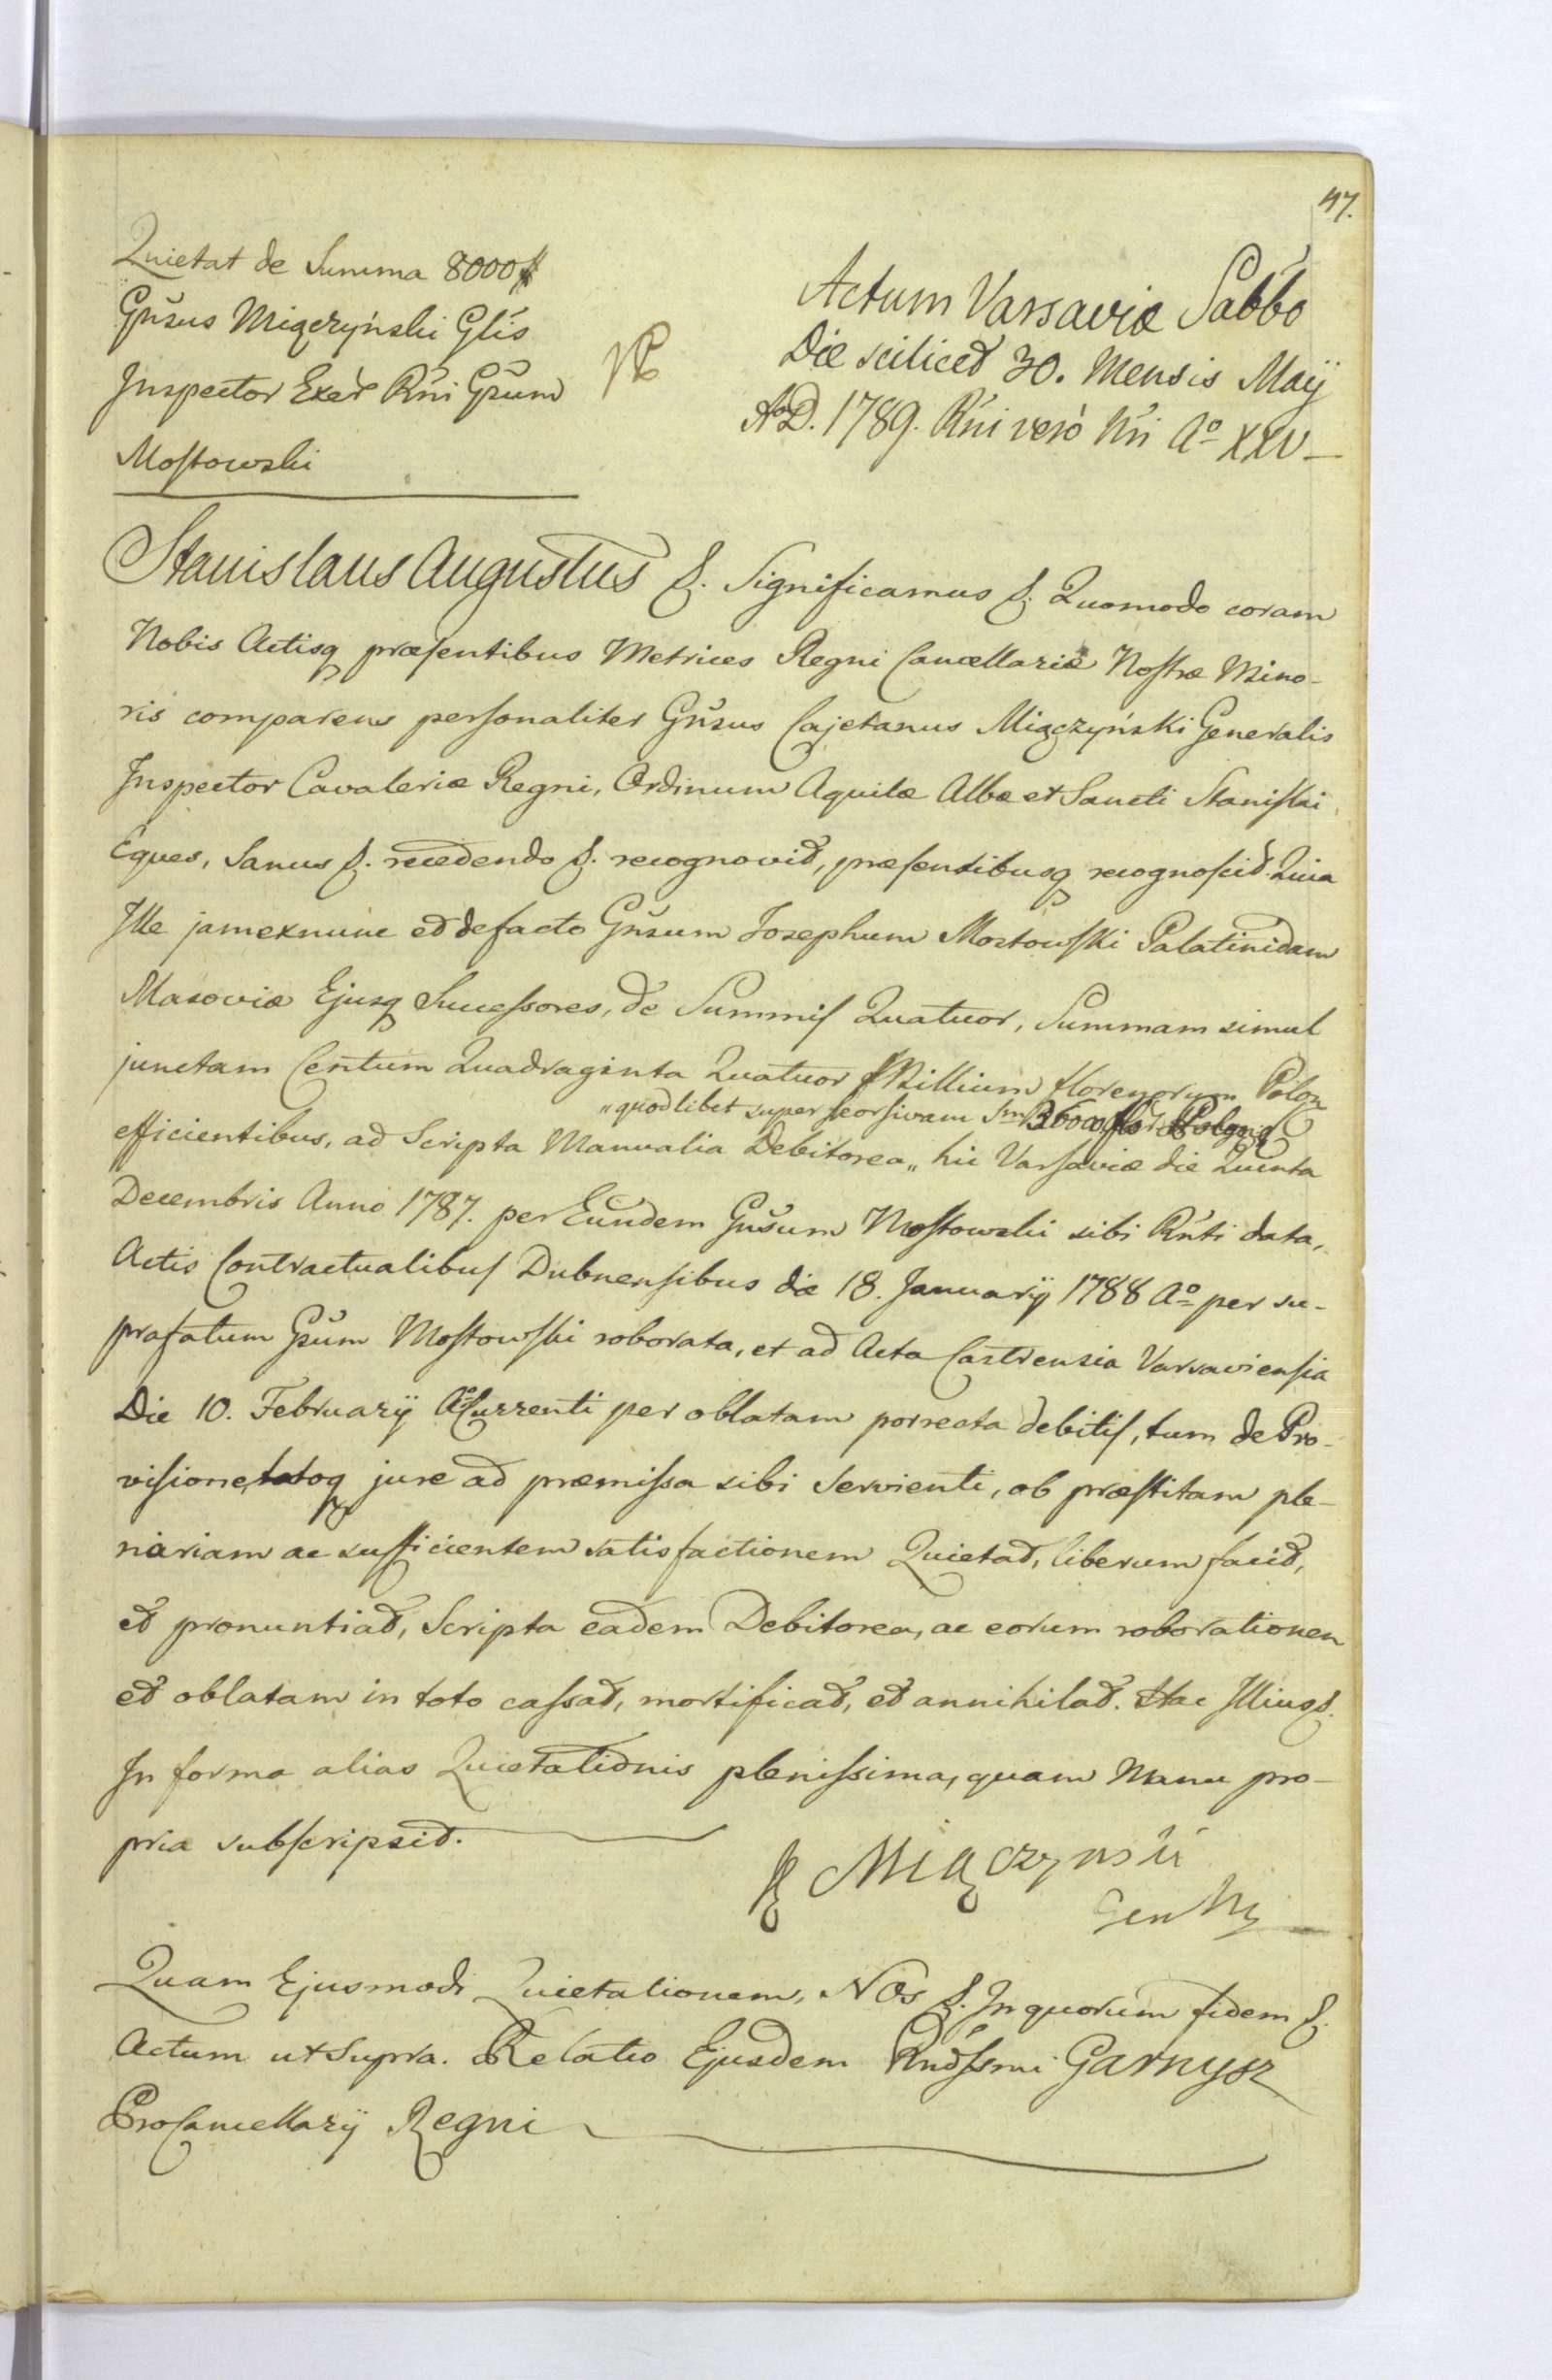 47.
Quietat de Summa 8000 #
Gnsus Miączyński Glis
Inspector Exer Rni Gsum
Mostowski
Actum Varsaviæ Sabbo
Die scilicet 30. Mensis Maÿ
A.D. 1789. Rni vero Nri Aº XXV
Stanislaus Augustus &. Significamus &. Quomodo coram
Nobis Actisq præsentibus Metrices Regni Cancellariæ Nostræ Mino-
ris comparens personaliter Gnsus Cajetanus Miączyński Generalis
Inspector Cavaleriæ Regni, Ordinum Aquilæ Albæ et Sancti Stanislai
Eques, Sanus &. recedendo &. recognovit, præsentibusq recognoscit. Quia
Ille jam ex nunc et de facto Gnsum Josephum Mostowski Palatinidam
Masoviæ Ejusq Successores, de Summis Quatuor, Summam simul
junctam Centum Quadraginta Quatuor Millium florenorum Polon
"quodlibet super seorsivam Sm 36000 flor Polon
efficientibus, ad Scripta Manualia Debitorea " hic Varsaviæ die Quinta
Decembris Anno 1787. per Eundem Gnsum Mostowski sibi Rnti data,
Actis Contractualibus Dubnensibus die 18. Januarÿ 1788 Aº per su-
prafatum Gsum Mostowski roborata, et ad Acta Castrensia Varsaviensia
Die 10. Februarÿ Aº Currenti per oblatam porrecta debitis, tum de Pro-
visione, totoq jure ad præmissa sibi servienti, ob præstitam ple-
nariam ac sufficientem satisfactionem Quietat, liberum facit,
et pronuntiat, Scripta eadem Debitorea, ac eorum roborationem
et oblatam in toto cassat, mortificat, et annihilat. Hac Illius &.
In forma alias Quietationis plenissima, quam Manu pro-
pria subscripsit.
K Miączyński
Quam Ejusmodi Quietationem, NOs &. In quorum fidem &.
Actum ut Supra. Relatio Ejusdem Rndssmi Garnysz
ProCancellarÿ Regni